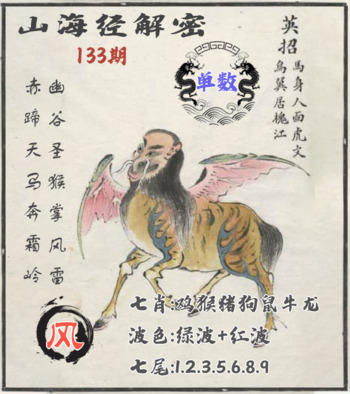 山海经解密
133期
单数
英招
馬身人面虎文
鸟翼居槐江
幽谷圣猴掌风雷
赤蹄天马奔霜岭
风
七肖:鸡猴猪狗鼠牛龙
波色:绿波+红波
七尾:1.2.3.5.6.8.9